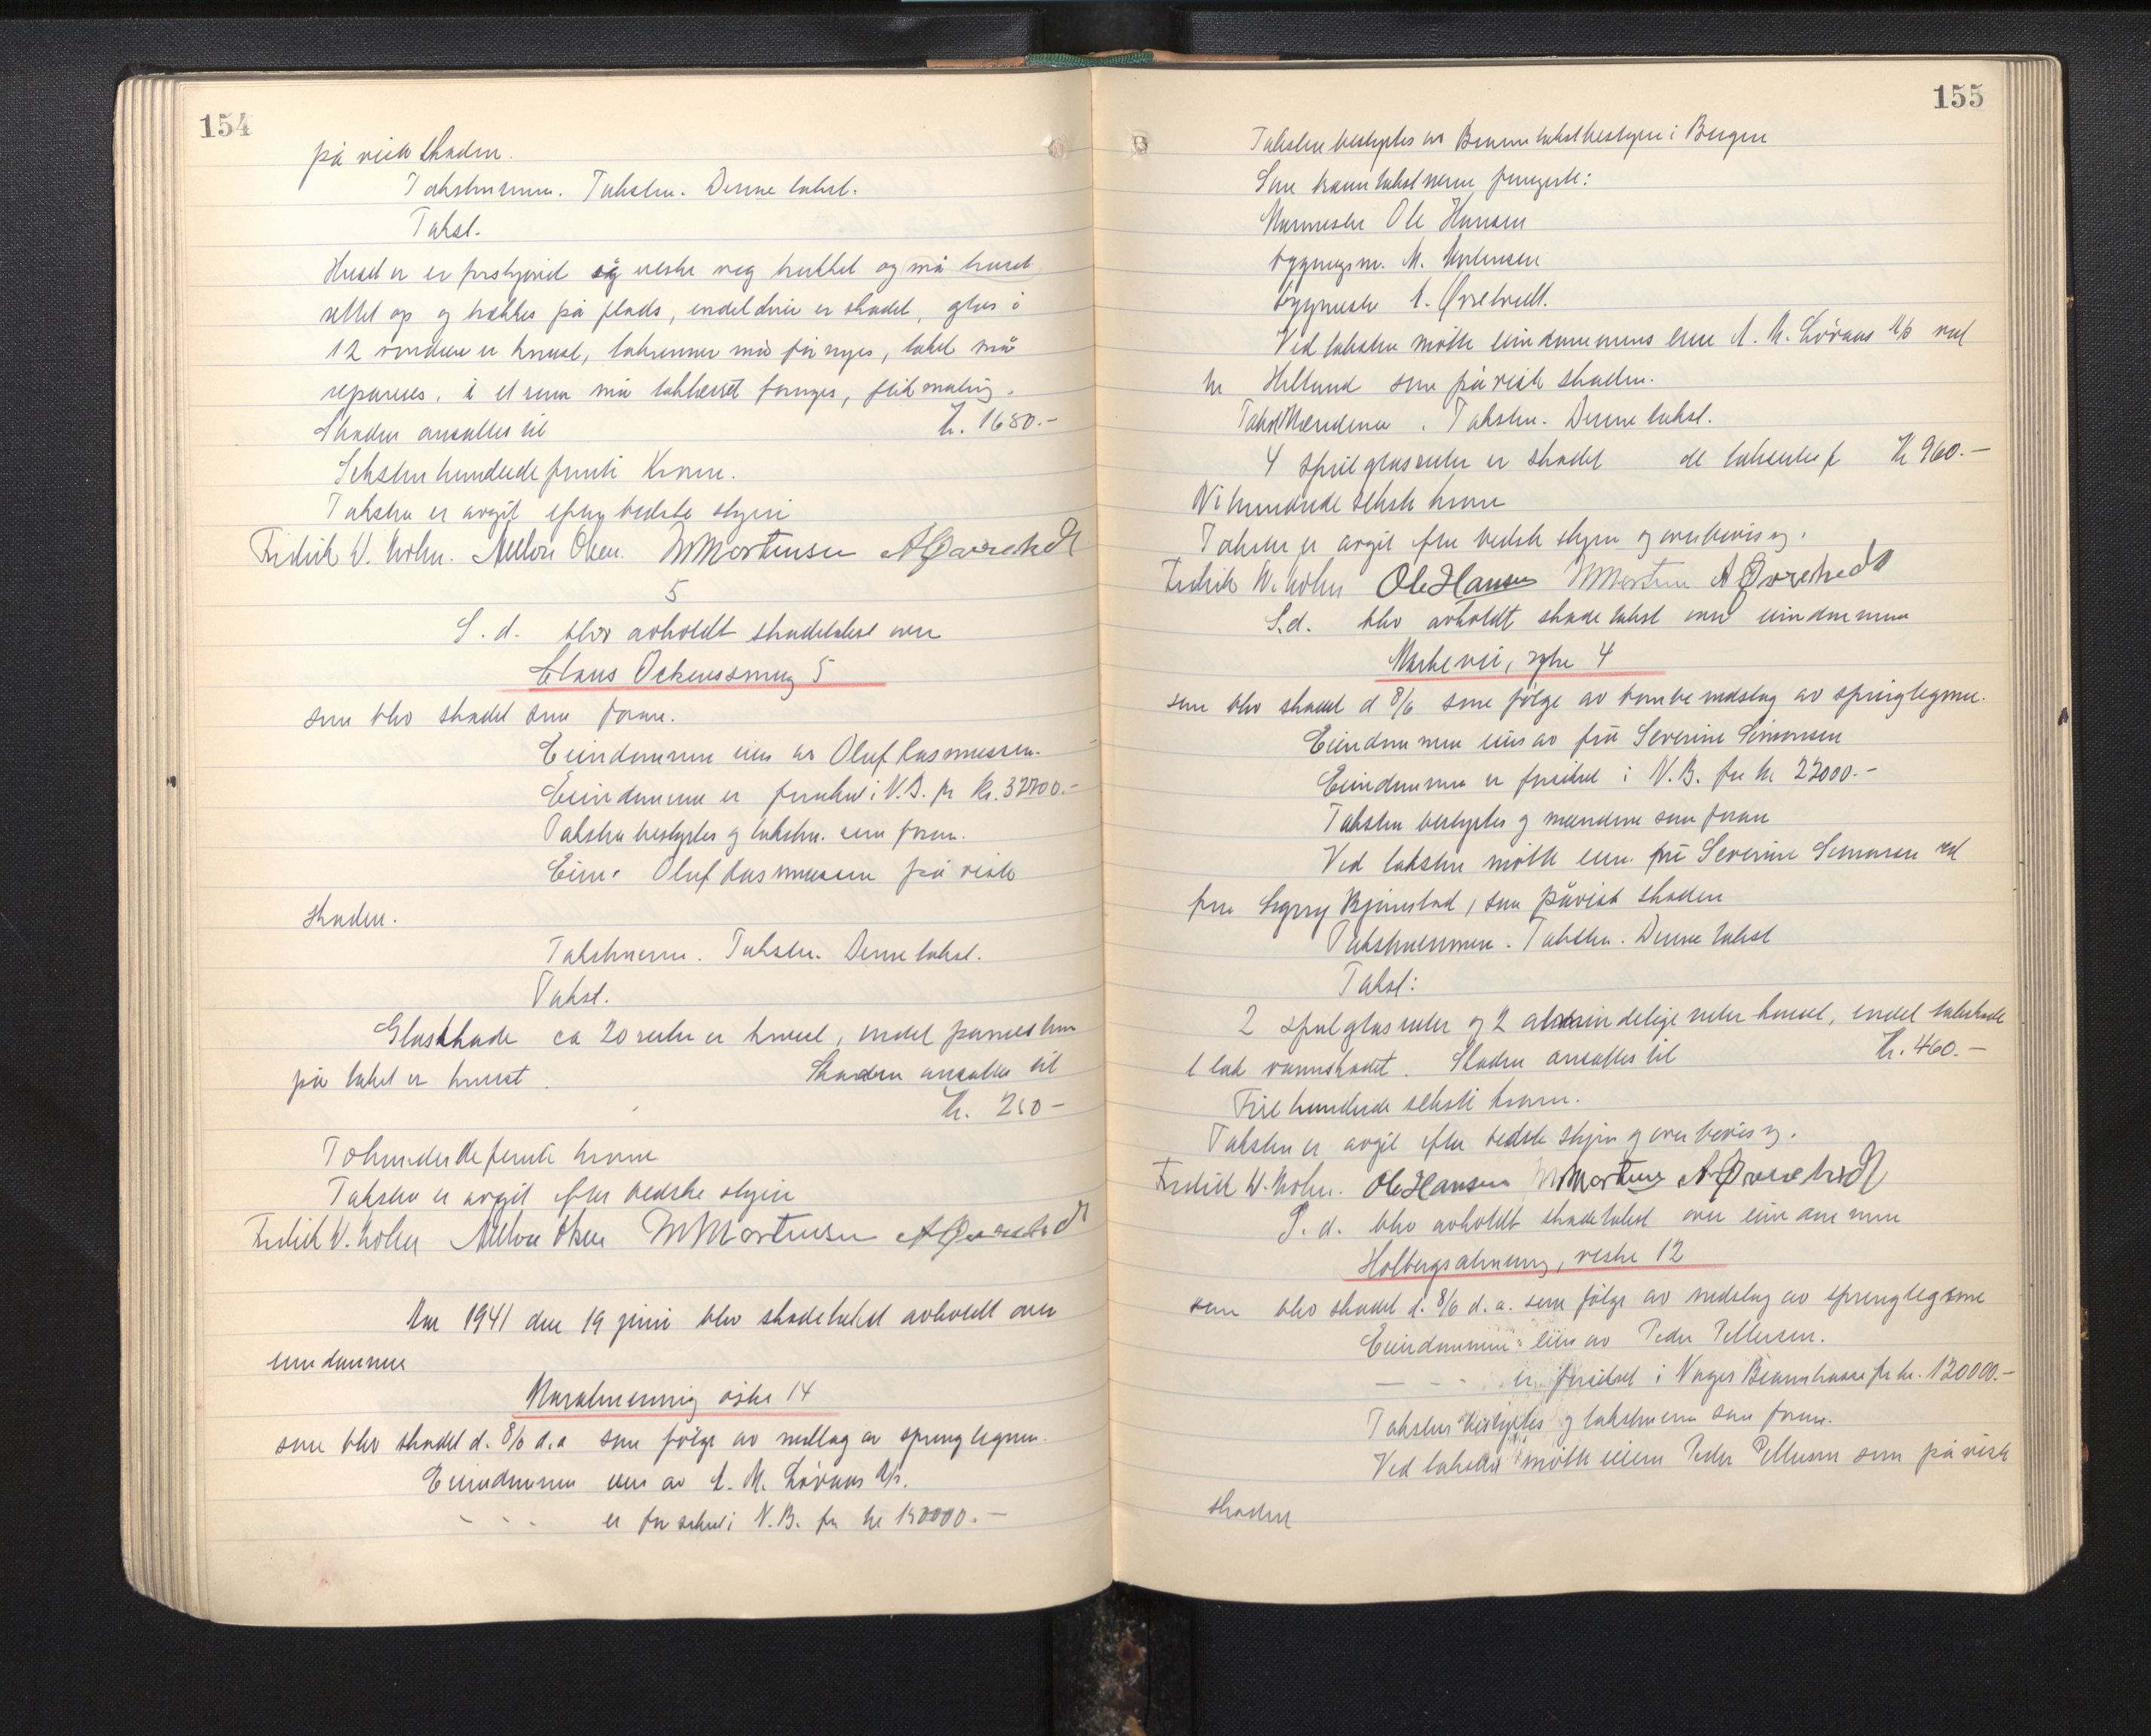 154
på viste skaden.
Takstmennene. Taksten. Denne takst.
Takst.
Huset er er forskjøvet og vestre veg trukket og må huset
rettet op og trekkes på plads, endel dører er skadet, glas i
12 vinduer er knust, takrenner må fornyes, taket må
repareres, i et rum må takbrettet fornyes, flik maling.
Skaden ansattes til Kr. 1650.-
Seksten hundrede femti Kroner.
Taksten er avgit efter bedste skjøn
Fredrik W. Mohn. Olsen. M Mortensen A Øvretvedt
5
S. d. blev avholdt skadetakst over
Claus Ockenssmug 5
som blev skadet som foran.
Eiendommen eies av Oluf Rasmussen.
Eiendommen er forsikret i N.B. for kr. 32700.-
Taksten bestyrtes og takstm. som foran.
Eier Oluf Rasmussen på viste
skaden.
Takstmenn. Taksten. Denne takst.
Takst.
Glasskade ca 20 ruter er knust, endel pannesten
på taket er knust. Skaden ansattes til
Kr. 250-
Tohundrede femti kroner
Taksten er avgit efter bedste skjøn
Fredrik W. Mohn Olsen M Mortensen A Øvretvedt
Aar 1941 den 19 juni blev skadetakst avholdt over
eiendommen
Muralmenning østre 14
som blev skadet d. 8/6 d.a som følge av nedslag av spreng legeme.
Eiendommen eies av A. M. Løvaas A/S.
- - - er forsikret i N.B. for kr 150000.-
155
Taksten bestyrtes av Branntakstbestyrer i Bergen
Som branntakstmenn fungerte:
Murmester Ole Hansen
bygningsm. M. Mortensen
bygmester A. Øvretvedt.
Ved taksten møtte eiendommens eier A. M. Løvaas A/S ved
hr Helland som på viste skaden.
Takstmændene. Taksten. Denne takst.
4 speilglasruter er skadet de takseres for Kr 960.-
Ni hundrede seksti kroner
Taksten er avgit efter bedste skjøn og overbevisning.
Fredrik W. Mohn Ole Hansen M Mortensen A Øvretvedt
S.d. blev avholdt skade takst over eiendommen
Markevei, søtre 4
som blev skadet d 8/6 som følge av bombe nedslag av sprenglegeme.
Eiendommen eies av frü Severine Simonsen
Eiendommen er forsikret i N.B. for kr 22000.-
Taksten bestyrtes og mændene som foran
Ved taksten møtte eier. frü Severine Simonsen ved
fru Bjørnstad, som påviste skaden
Takstmennene. Taksten. Denne takst
Takst:
2 speilglasruter og 2 almindelige ruter knust, endel takskade
1 tak vannskadet. Skaden ansattes til Kr. 460.-
Fire hundrede seksti kroner.
Taksten er avgit efter bedste skjøn og overbevisng.
Fredrik W. Mohn. Ole Hansen M Mortensen A. Øvretvedt
S. d. blev avholdt skadetakst over eiendommen
Holbergsalmenng, vestre 12
som blev skadet d. 8/6 d. a. som følge av nedslag av sprenglegeme
Eiendommen eies av Peder Pettersen.
— - - er forsikret i Norges Brannkasse for kr. 120000.-
Taksten bestyrtes og takstmenn som foran.
Ved taksten møtte eieren Peder Pettersen som på viste
skaden